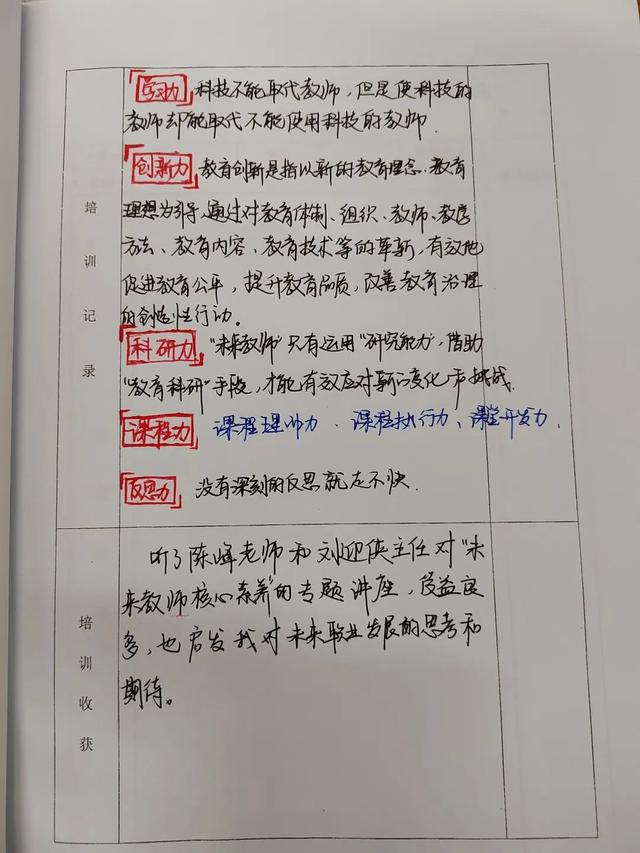 学习力 科技不能取代教师，但是使科技的
教师却能取代不能使用科技的教师.
创新力 教育创新是指以新的教育理念、教育
理想为引导，通过对教育体制、组织、教师、教学
方法、教育内容、教育技术等的革新，有效地
促进教育公平，提升教育品质，改善教育治理
的创造性行动。
科研力 "未来教师"只有运用"研究能力"，借助
"教育科研"手段，才能有效应对新的变化和挑战.
课程力 课程理解力、课程执行力、课程开发力.
反思力 没有深刻的反思就走不快.
培训记录
听了陈峰老师和刘迎侠主任对"未
来教师核心素养"的专题讲座，受益良
多，也启发我对未来职业发展的思考和
期待。
培训收获